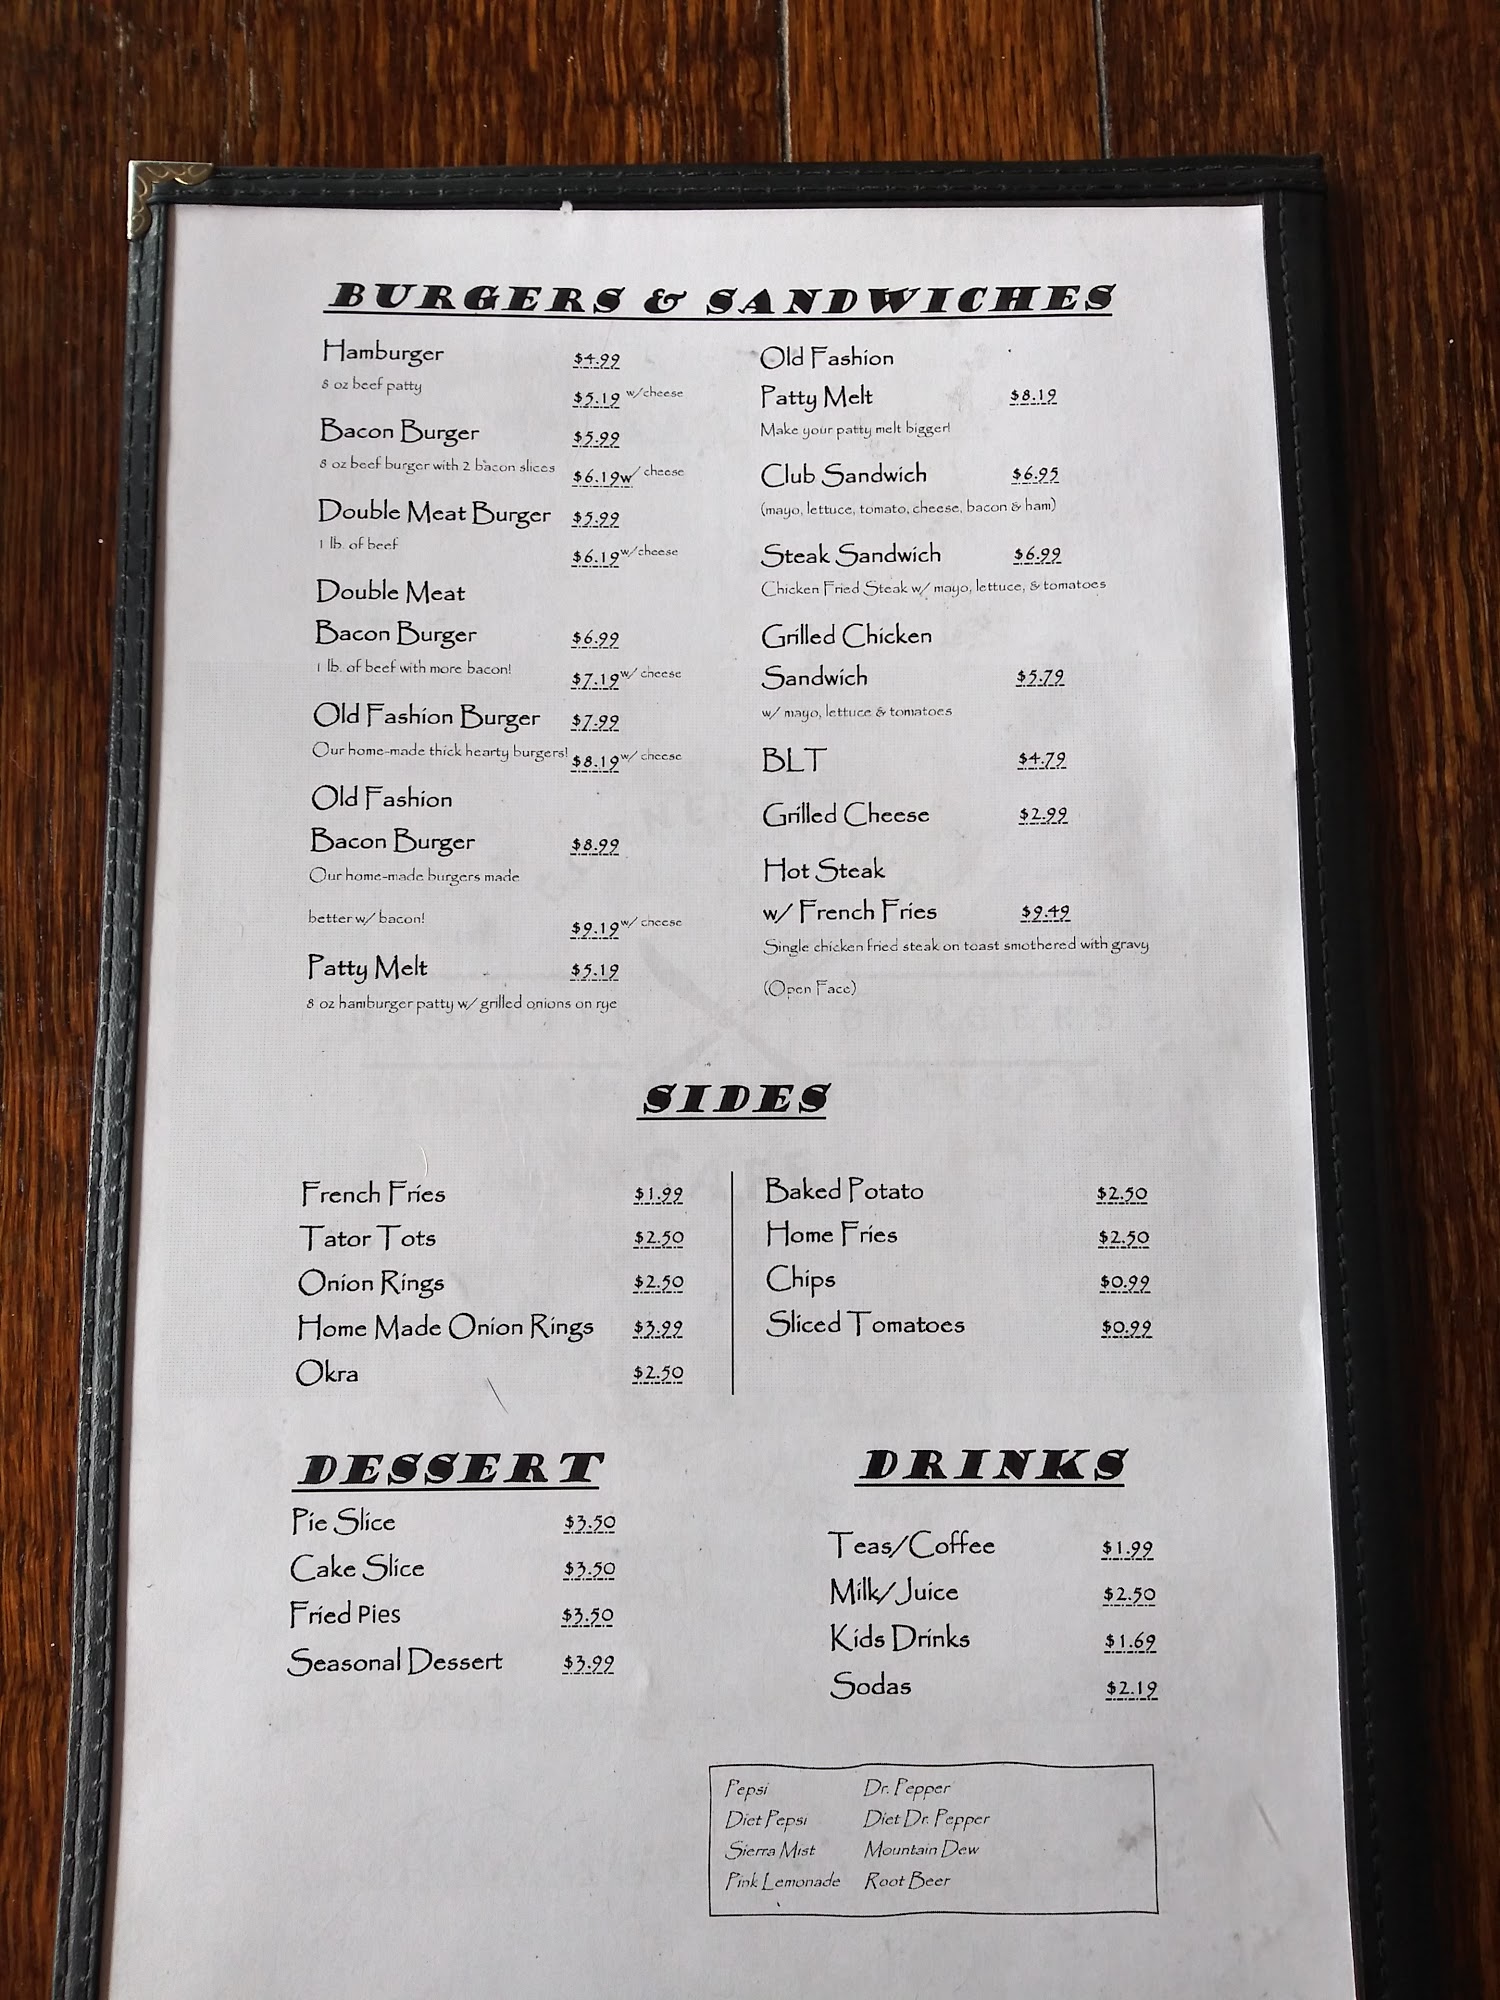 BURGERS & SANDWICHES
Hamburger $4.99
8 oz beef patty
$5.19 w/cheese
Bacon Burger $5.99
8 oz beef burger with 2 bacon slices $6.19w/ cheese
Double Meat Burger $5.99
1 lb. of beef
$6.19w/cheese
Double Meat
Bacon Burger $6.99
1 lb. of beef with more bacon!
$7.19w/ cheese
Old Fashion Burger $7.99
Our home-made thick hearty burgers! $8.19w/ cheese
Old Fashion
Bacon Burger $8.99
Our home-made burgers made
better w/ bacon!
$9.19w/ cheese
Patty Melt $5.19
8 oz hamburger patty w/ grilled onions on rye
Old Fashion
Patty Melt $8.19
Make your patty melt bigger!
Club Sandwich $6.95
(mayo, lettuce, tomato, cheese, bacon & ham)
Steak Sandwich $6.99
Chicken Fried Steak w/ mayo, lettuce, & tomatoes
Grilled Chicken
Sandwich $5.79
w/ mayo, lettuce & tomatoes
BLT $4.79
Grilled Cheese $2.99
Hot Steak
w/ French Fries $9.49
Single chicken fried steak on toast smothered with gravy
(Open Face)
SIDES
French Fries $1.99
Tator Tots $2.50
Onion Rings $2.50
Home Made Onion Rings $3.99
Okra $2.50
Baked Potato $2.50
Home Fries $2.50
Chips $0.99
Sliced Tomatoes $0.99
DESSERT
Pie Slice $3.50
Cake Slice $3.50
Fried Pies $3.50
Seasonal Dessert $3.99
DRINKS
Teas/Coffee $1.99
Milk/Juice $2.50
Kids Drinks $1.69
Sodas $2.19
Pepsi Dr. Pepper
Diet Pepsi Diet Dr. Pepper
Sierra Mist Mountain Dew
Pink Lemonade Root Beer